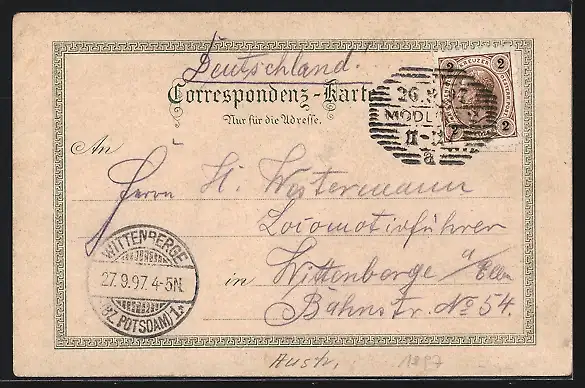 Deutschland.
Correspondenz-Karte
Nur für die Adresse.
2 KREUZER 2
2 2
26. 97
MÖDLING
a
An
Herrn H. Westermann
Locomotivführer
in Wittenberge a/Elbe
Bahnstr. No 54.
WITTENBERGE
27.9.97. 4-5N.
(BZ. POTSDAM) 1.
Austr. 1897